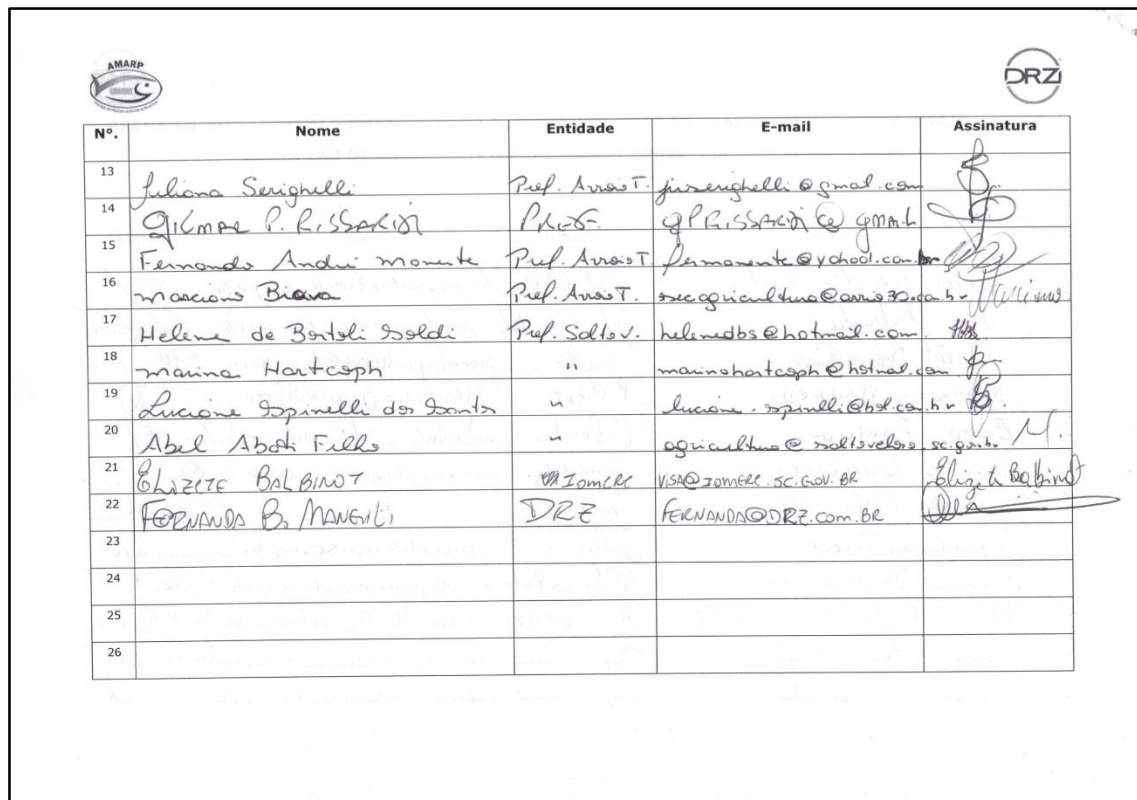 AMARP
DRZ
Nº. Nome Entidade E-mail Assinatura
13 Juliana Serighelli Pref. Arroio T. juserighelli@gmail.com
14 GILMAR P. RISSARDI PREF. GPRISSARDI@gmail
15 Fernando André Monente Pref. Arroio T fermanente@yahool.com.br
16 Marciano Brava Pref. Arroio T. secagricultura@arroio30.com.br Marciano
17 Helena de Bortoli Soldi Pref. Salto V. helenedbs@hotmail.com
18 Marina Hartcoph " marinahartcoph@hotmail.com
19 Luciane Spinelli dos Santos " luciane.spinelli@hotmail.com.br
20 Abel Abati Filho " agricultura@saltoveloso.sc.gov.br
21 ELIZETE BALBINOT IOMERE VISA@IOMERE.SC.GOV.BR Elizete Balbinot
22 FERNANDA B. MANGILI DRZ FERNANDA@DRZ.COM.BR
23
24
25
26